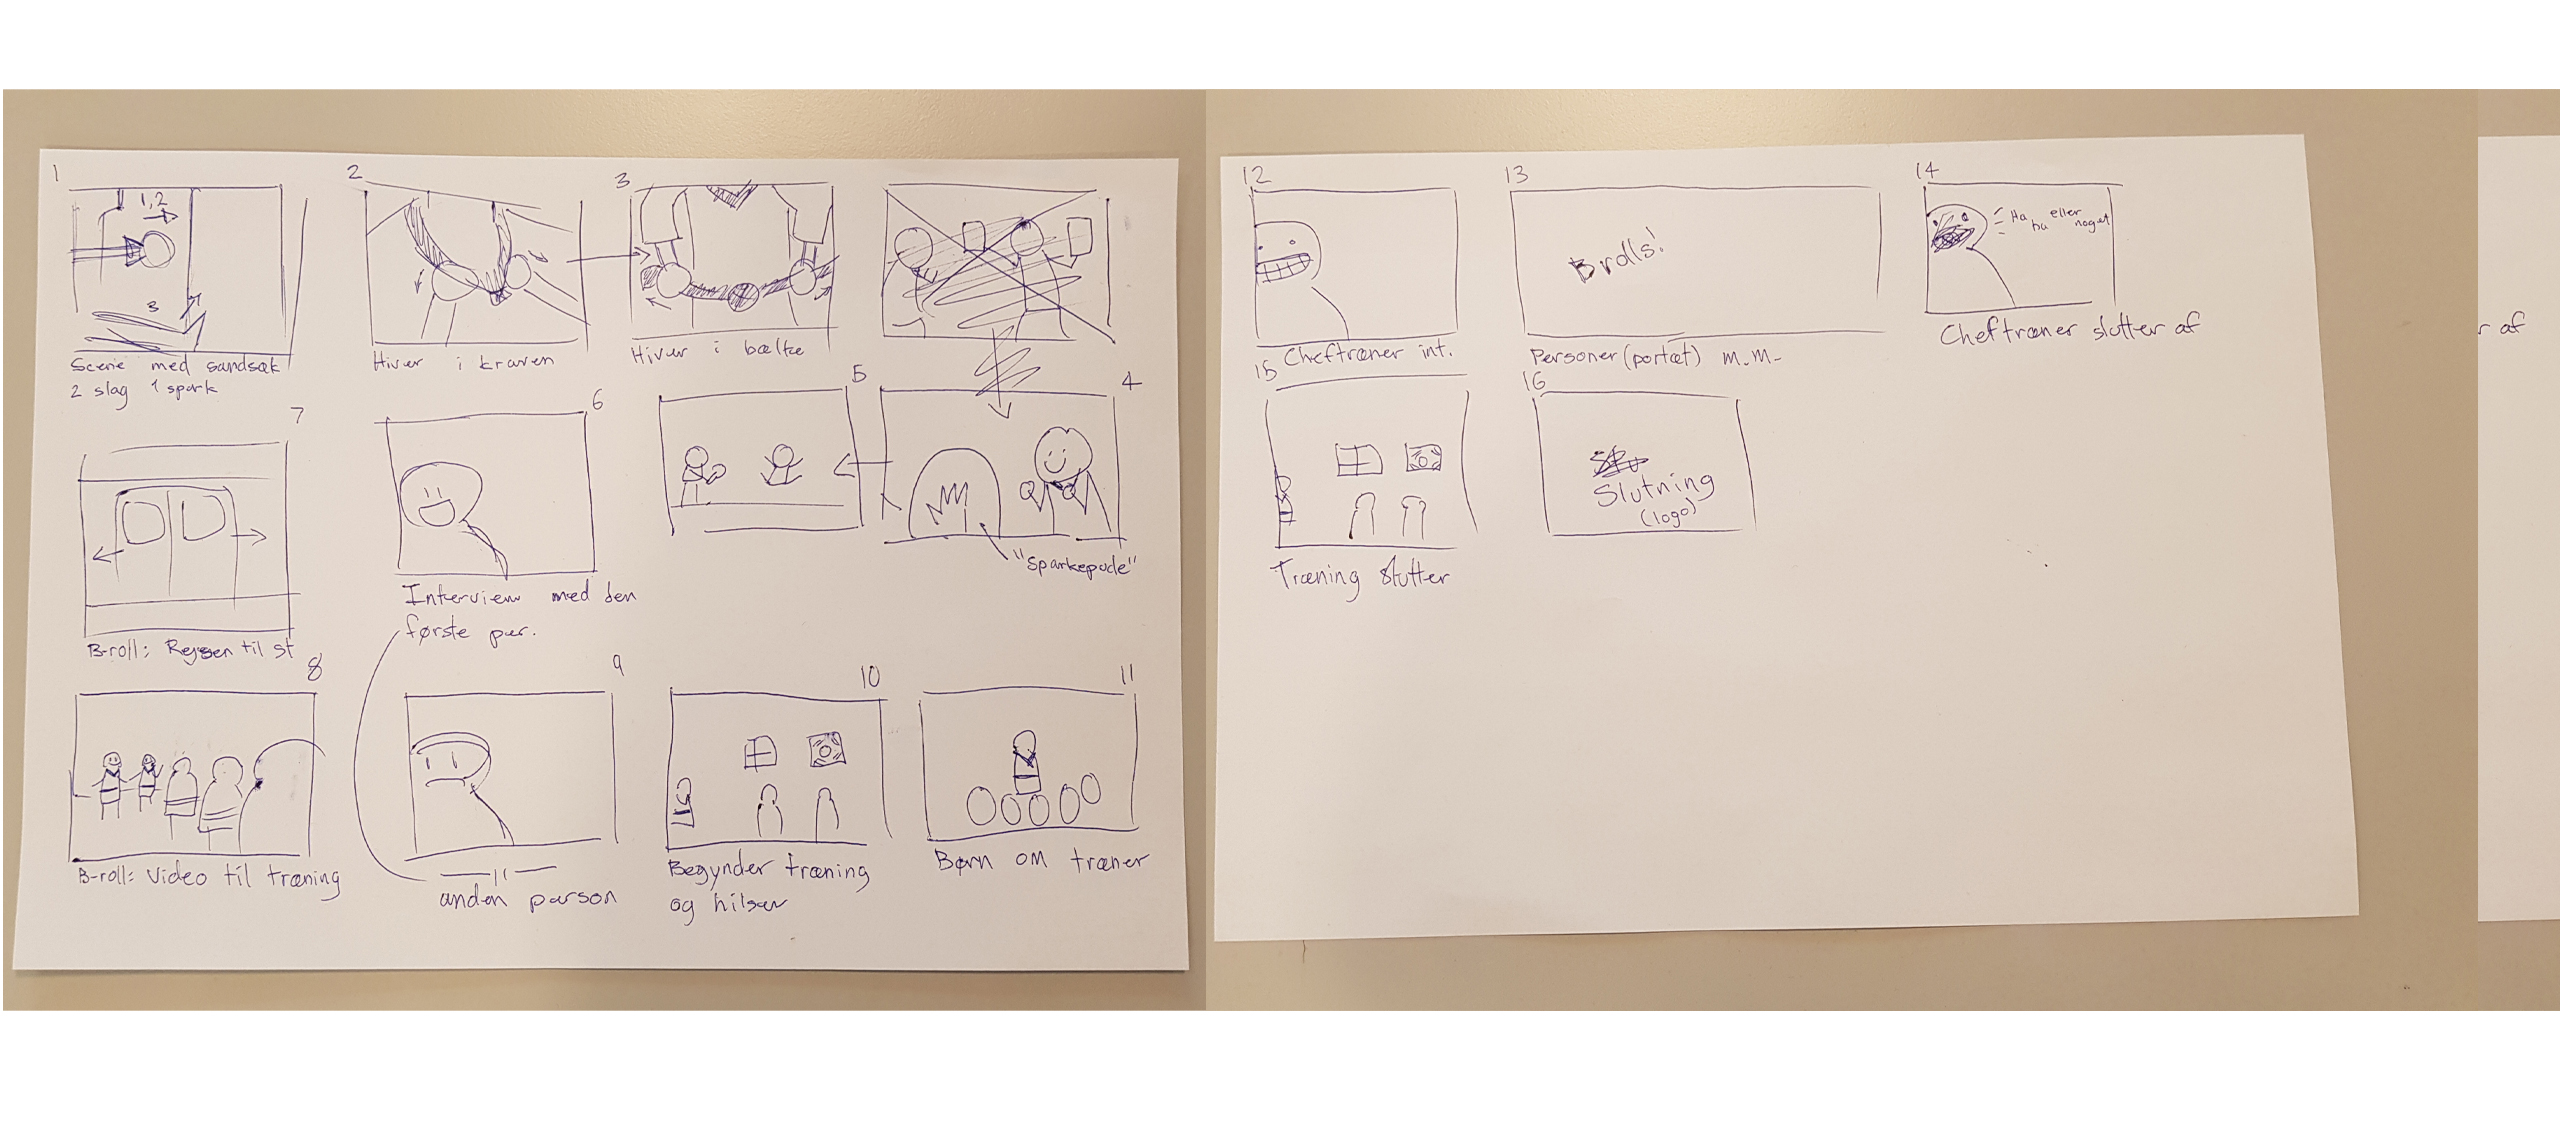 1
1,2
3
Scene med sandsæk
2 slag 1 spark
2
Hiver i kraven
3
Hiver i bælte
4
"Sparkepude"
5
6
Interview med den
første per.
7
B-roll: Rejsen til st
8
B-roll: Video til træning
9
—— 11 ——
anden person
10
Begynder træning
og hilser
11
Børn om træner
12
Cheftræner int.
13
B rolls!
Personer (portæt) m.m.
14
Ha ha eller noget
Cheftræner slutter af
15
Træning slutter
16
Slutning
(logo)
r af